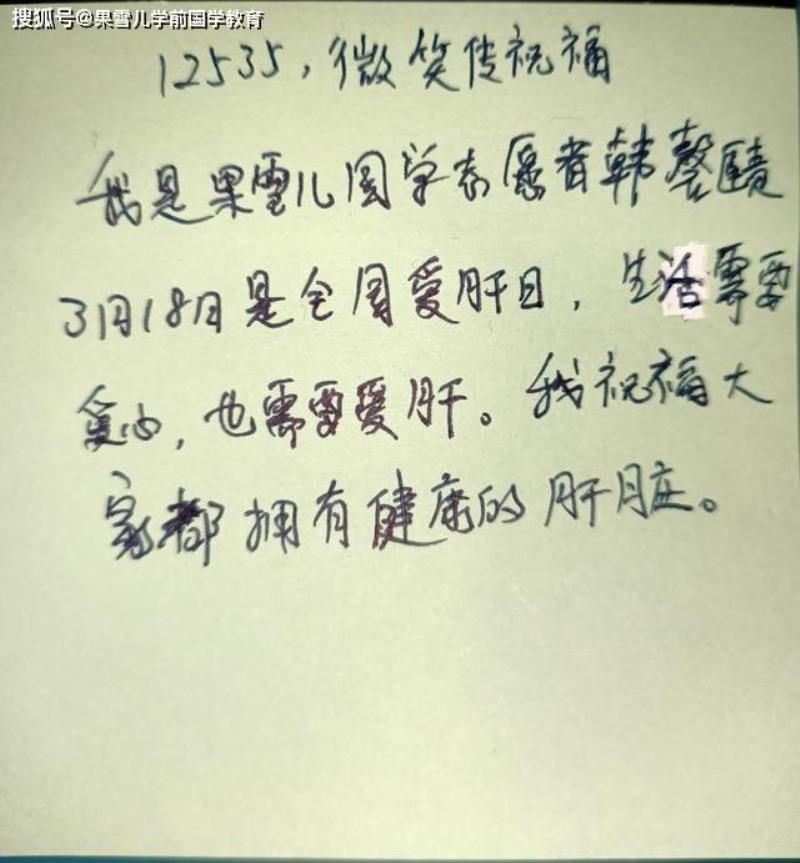 搜狐号@果雪儿学前国学教育
12535，微笑传祝福
我是果雪儿国学志愿者韩磬
3月18日是全国爱肝日，生活需要
爱心，也需要爱肝。我祝福大
家都拥有健康的肝脏。